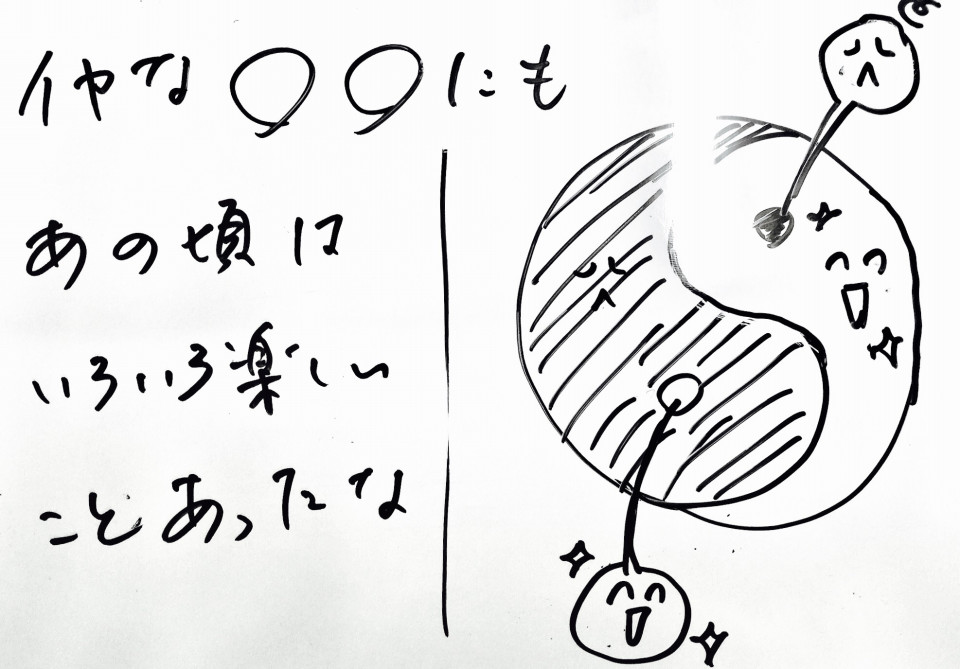 イヤな〇〇にも
あの頃は
いろいろ楽しい
ことあったな